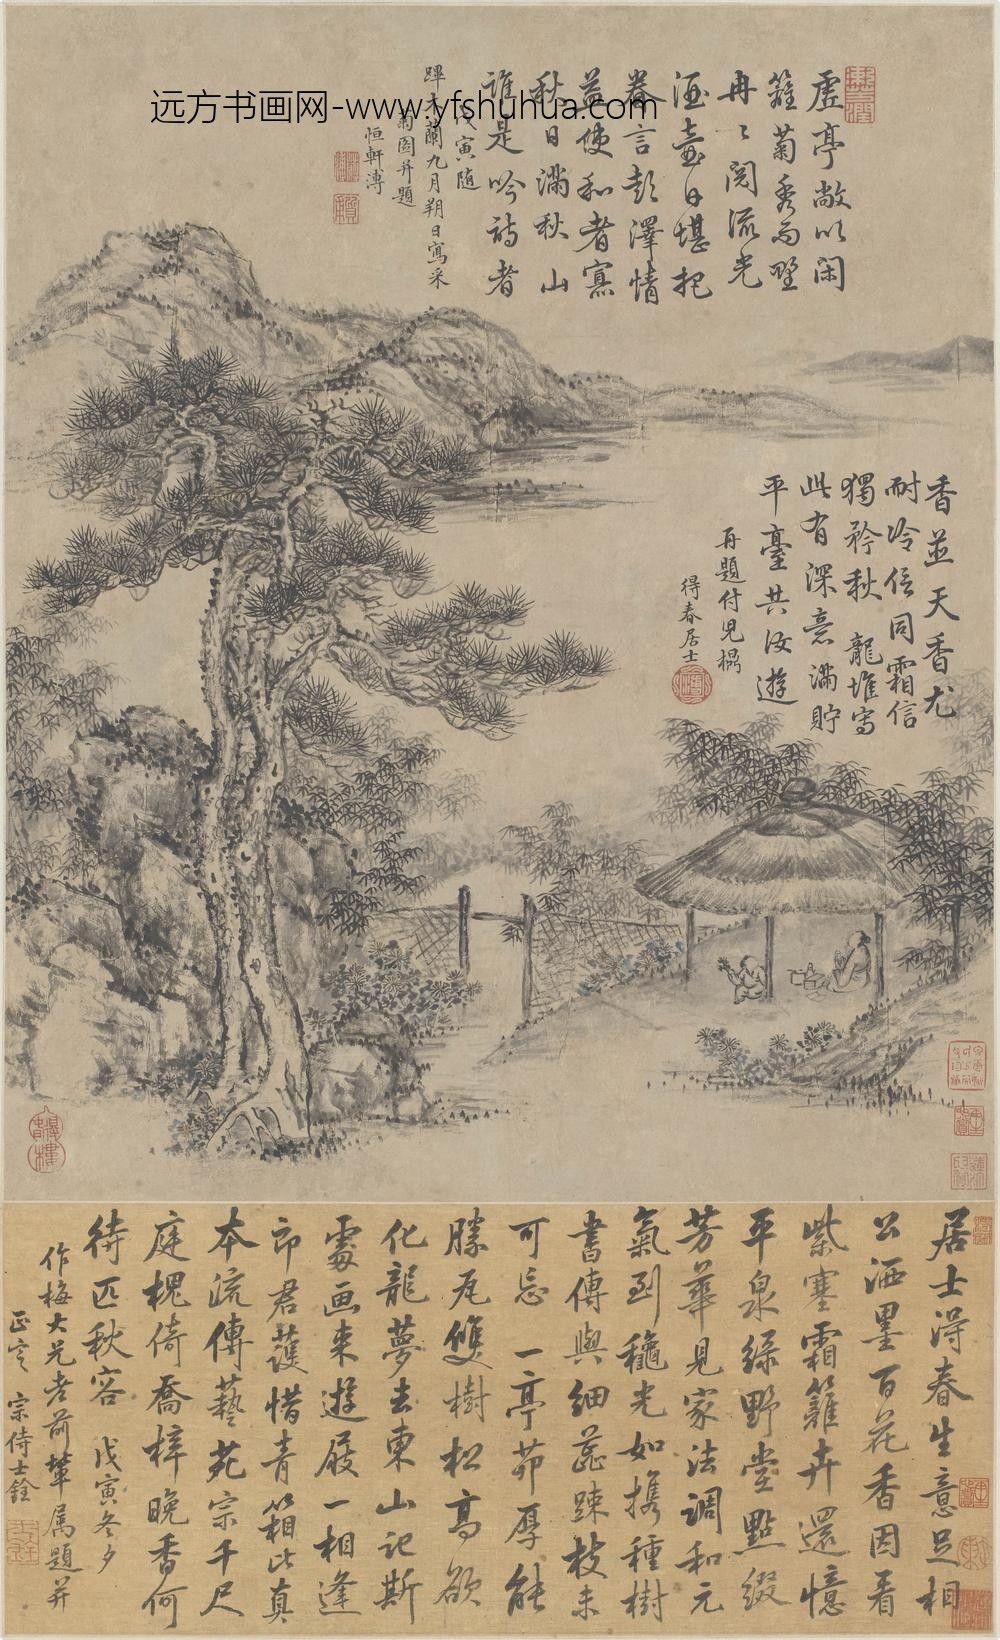 远方书画网-www.yfshuhua.com
虚亭敞以閑
籬菊秀而野
冉冉閲流光
酒壺日堪把
眷言彭澤情
益使和者寡
秋日滿秋山
誰是吟詩者
戊寅随
蹕木蘭九月朔日寫采
菊図并題
恒軒溥
香並天香尤
耐冷信同霜信
獨矜秋龍堆寄
此有深意滿貯
平臺共汝遊
再題付兒
得春居士
居士得春生意足相
公洒墨百花香因看
紫塞霜籬卉還憶
平泉緑野堂點綴
芳華見家法調和元
氣到穐光如攜種樹
書傳與細蕊疎枝未
可忘一亭茆厚能
勝瓦雙樹松高欲
化龍夢去東山記斯
處画来遊屐一相逢
郎君護惜青箱比真
本流傳藝苑宗千尺
庭槐倚喬梓晚香何
待匹秋容 戊寅冬夕
作梅大兄老前輩属題并
正之 宗侍士銓